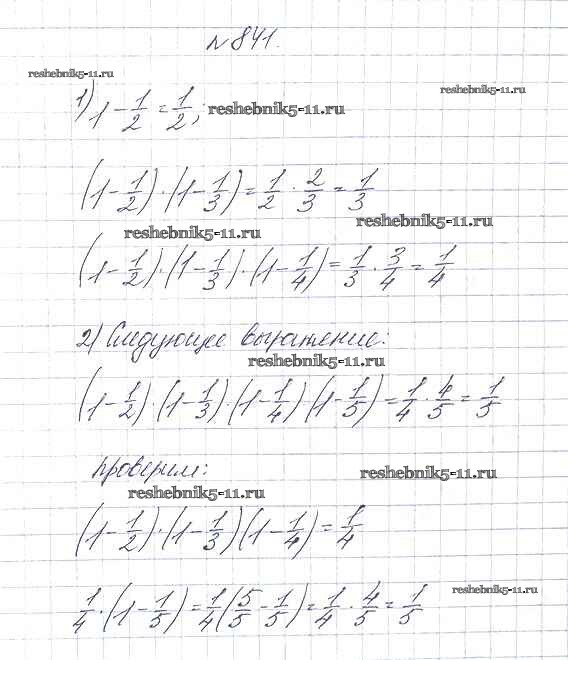 № 841.
reshebnik5-11.ru
reshebnik5-11.ru
1) 1 - 1/2 = 1/2; reshebnik5-11.ru
(1 - 1/2) · (1 - 1/3) = 1/2 · 2/3 = 1/3
reshebnik5-11.ru
reshebnik5-11.ru
(1 - 1/2) · (1 - 1/3) · (1 - 1/4) = 1/3 · 3/4 = 1/4
2) Следующее выражение:
reshebnik5-11.ru
(1 - 1/2) · (1 - 1/3) · (1 - 1/4) (1 - 1/5) = 1/4 · 4/5 = 1/5
Проверим:
reshebnik5-11.ru
reshebnik5-11.ru
(1 - 1/2) · (1 - 1/3) (1 - 1/4) = 1/4
reshebnik5-11.ru
1/4 · (1 - 1/5) = 1/4 (5/5 - 1/5) = 1/4 · 4/5 = 1/5